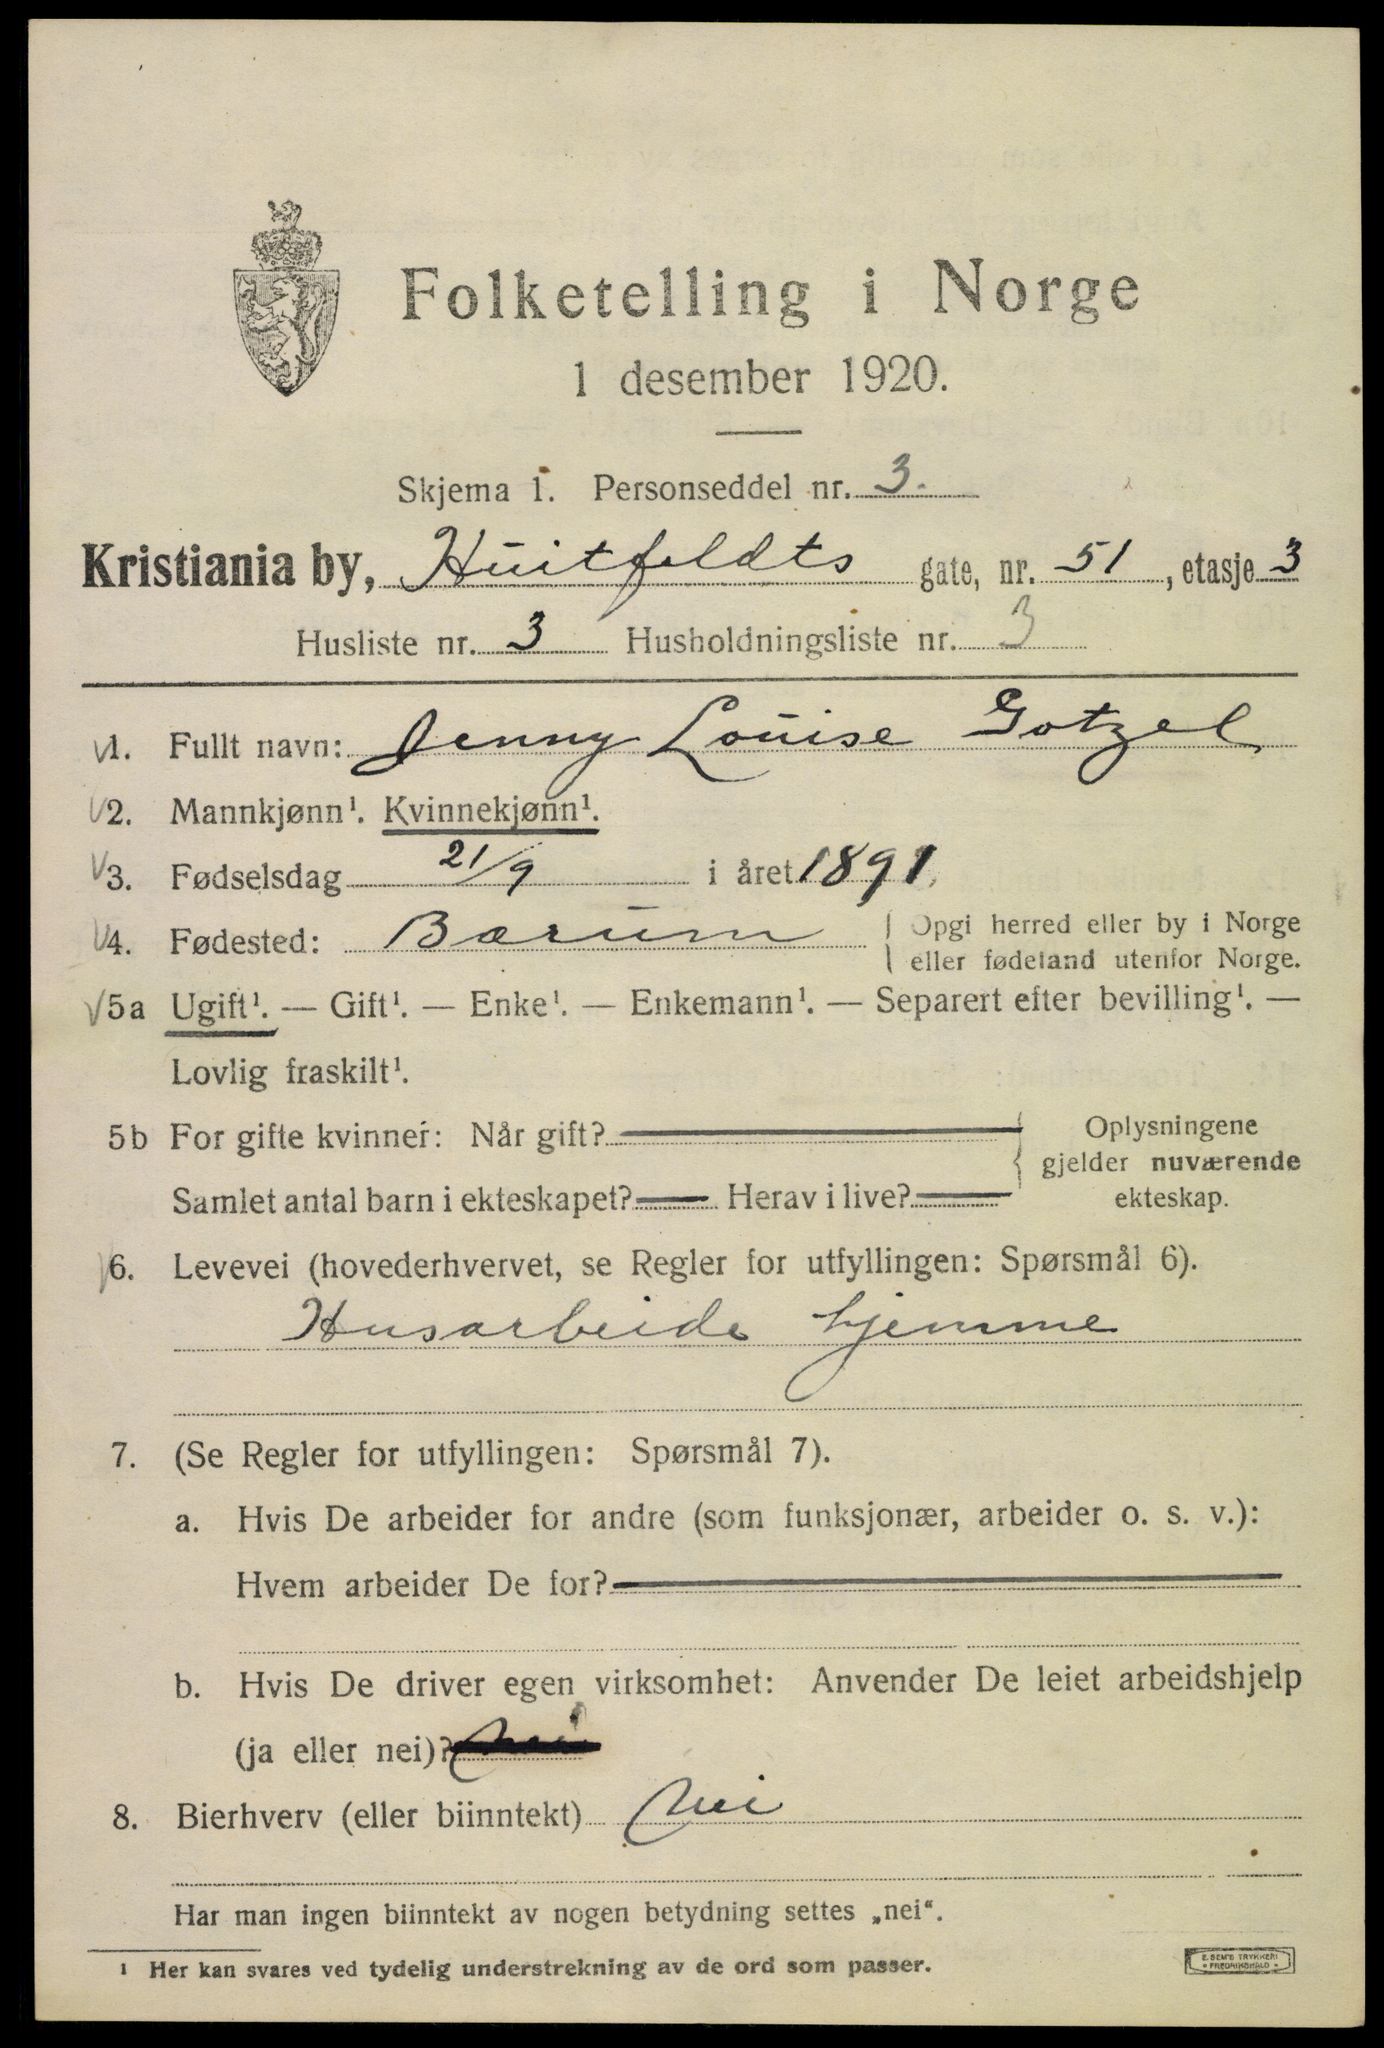 Folketelling i Norge
1 desember 1920.
Skjema 1. Personseddel nr. 3.
Kristiania by, Huitfeldts gate, nr. 51, etasje 3
Husliste nr. 3 Husholdningsliste nr. 3
1. Fullt navn: Jenny Louise Gotzel
2. Mannkjønn¹. Kvinnekjønn¹.
3. Fødselsdag 21/9 i året 1891.
4. Fødested: Bærum { Opgi herred eller by i Norge
eller fødeland utenfor Norge.
5a Ugift¹. — Gift¹. — Enke¹. — Enkemann¹. — Separert efter bevilling¹. —
Lovlig fraskilt¹.
5b For gifte kvinner: Når gift? — { Oplysningene
gjelder nuværende
Samlet antal barn i ekteskapet? — Herav i live? — ekteskap.
6. Levevei (hovederhvervet, se Regler for utfyllingen: Spørsmål 6).
Husarbeide hjemme
7. (Se Regler for utfyllingen: Spørsmål 7).
a. Hvis De arbeider for andre (som funksjonær, arbeider o. s. v.):
Hvem arbeider De for? —
b. Hvis De driver egen virksomhet: Anvender De leiet arbeidshjelp
(ja eller nei)? nei
8. Bierhverv (eller biinntekt) nei
Har man ingen biinntekt av nogen betydning settes „nei“.
¹ Her kan svares ved tydelig understrekning av de ord som passer.
E. SEM'S TRYKKERI
• FREDRIKSHALD •